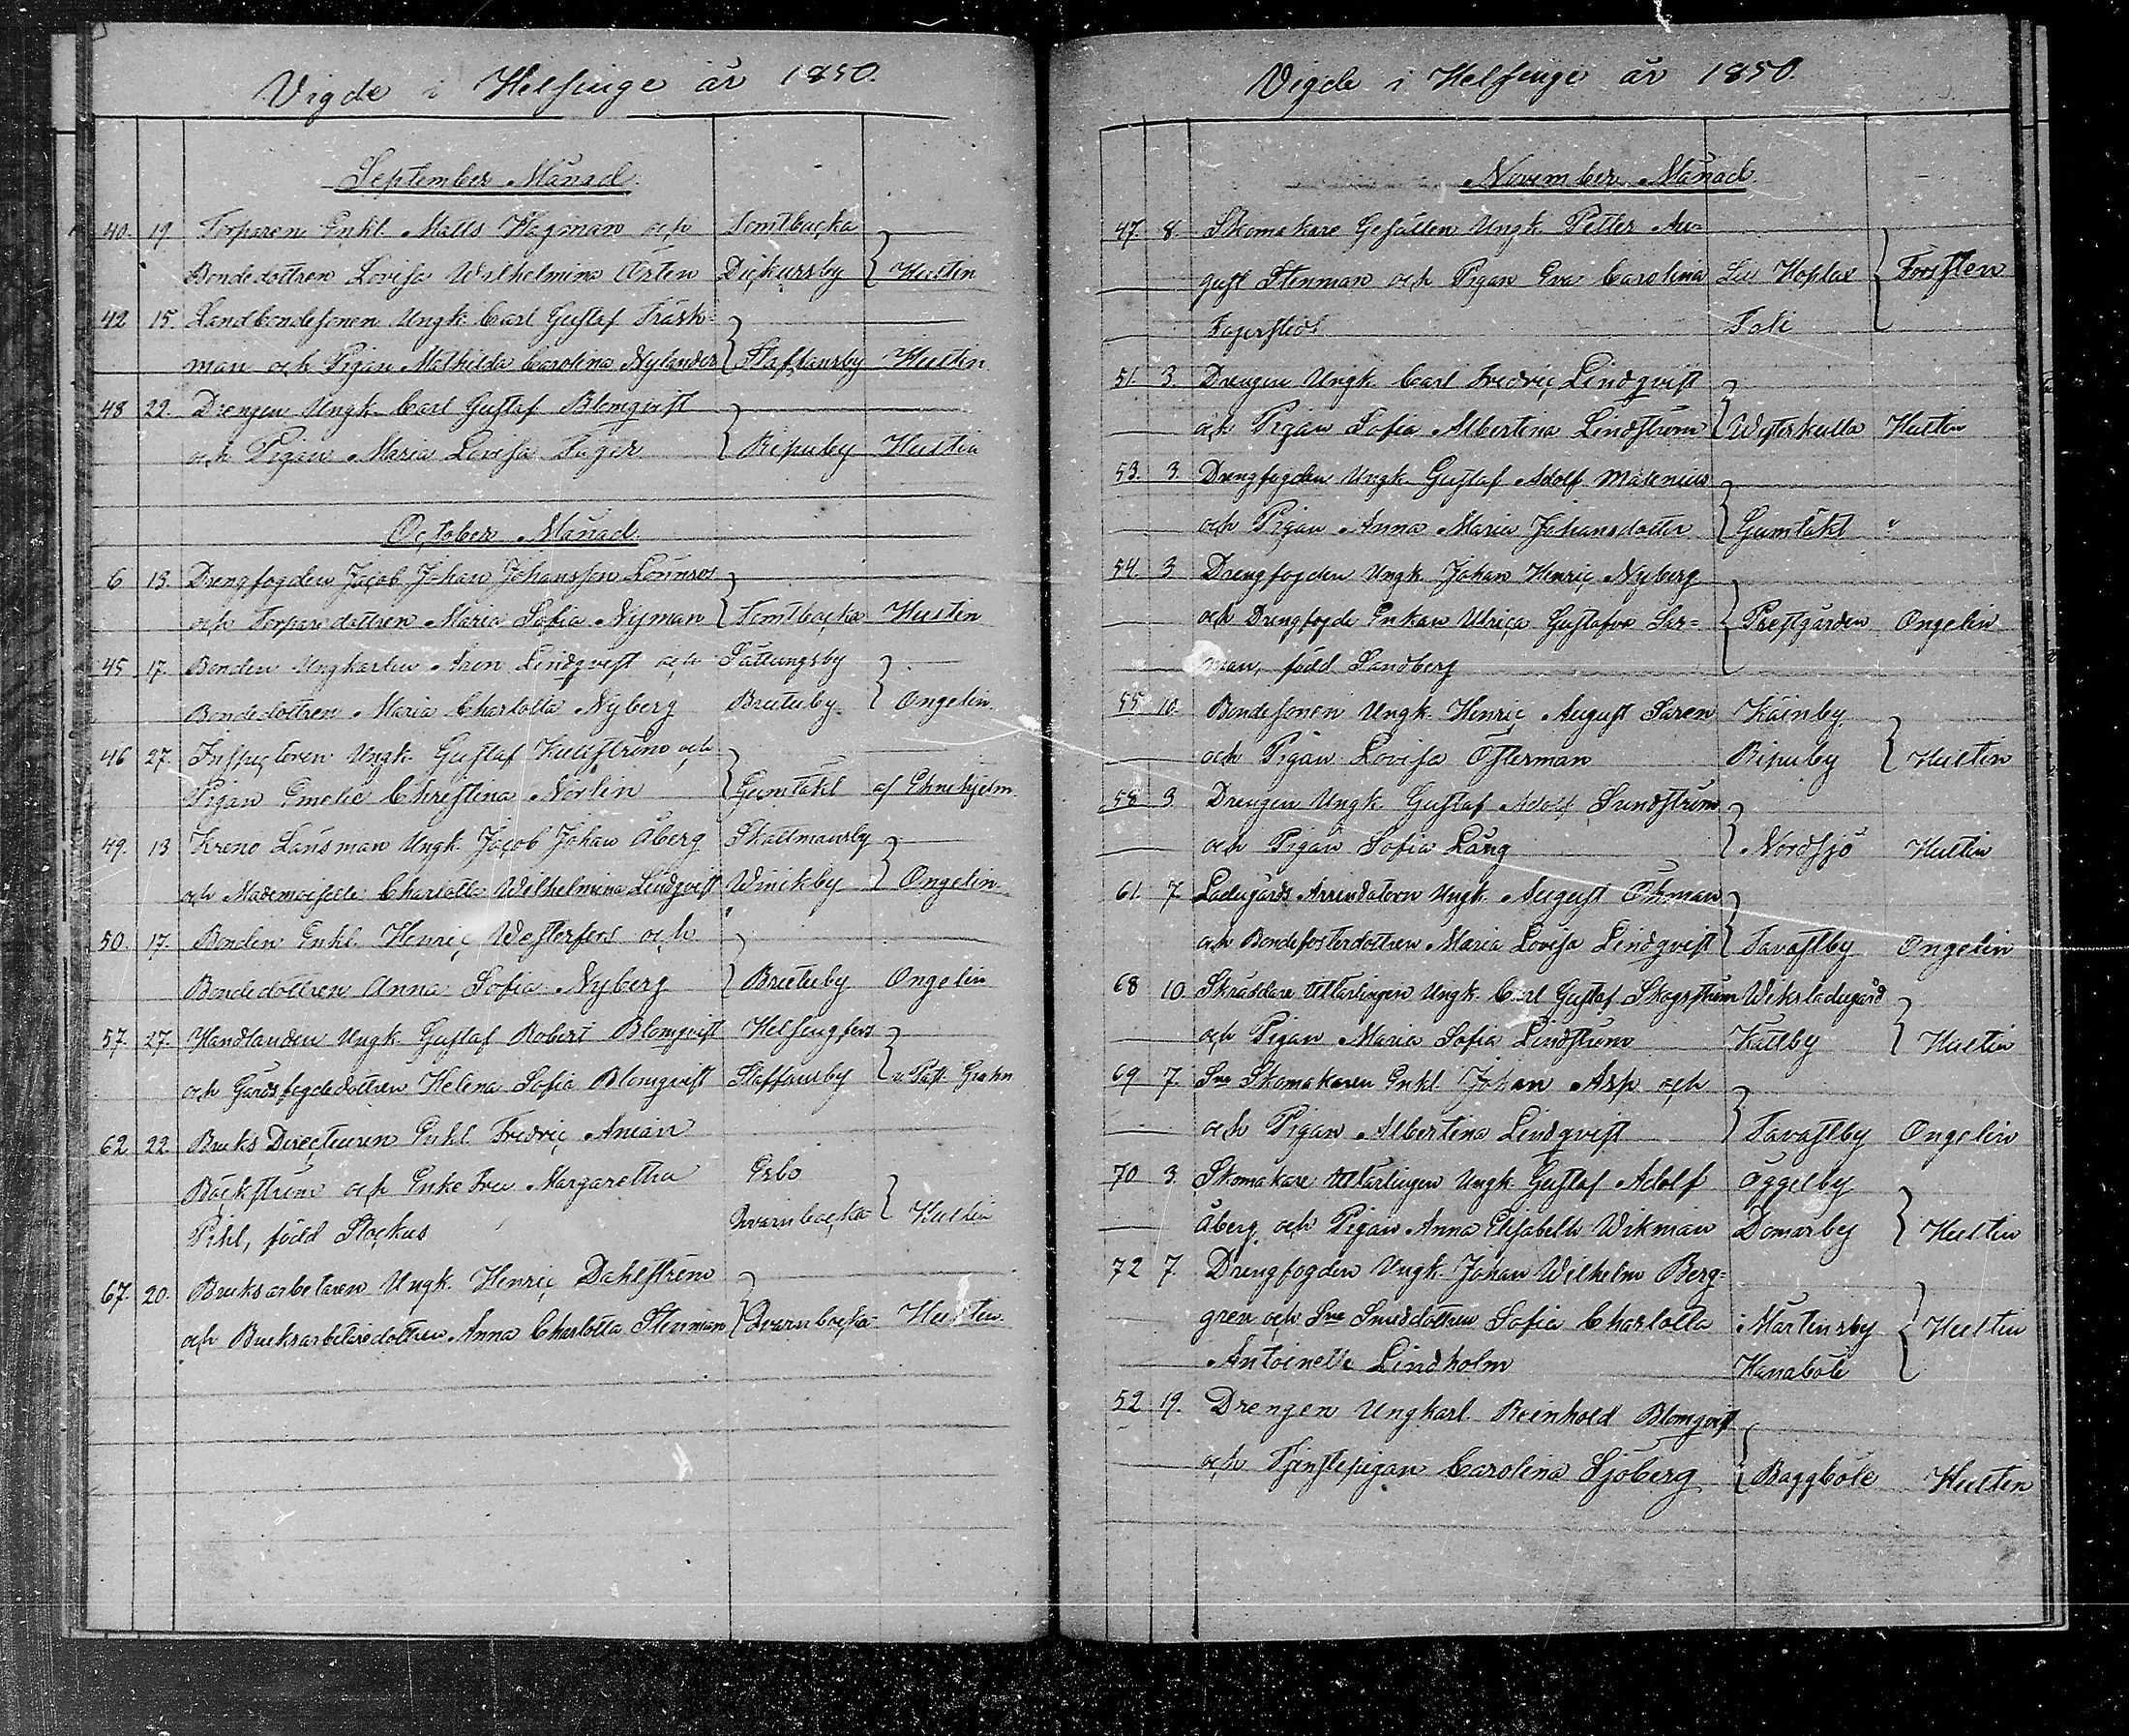 Vigde i Helsinge år 1850.
September Månad.
40. 19 Torparen Enkl. Matts Hagman och Tomtbacka
Bondedottren Lovisa Wilhelmina Örten Dickursby Hultin
42 15. Landbondesonen Ungk. Carl Gustaf Träsk-
man och Pigan Mathilda Carolina Nylander Staffansby Hultin
48 22. Drengen Ungk. Carl Gustaf Blomqvist
och Pigan Maria Lovisa Fager Ripuby Hultin
October Månad
6 13. Drengfogden Jacob Johan Johansson Lönnros
och Torparedottren Maria Sofia Nyman Tomtbacka Hultin
45 17. Bonden Ungkarlen Aron Lindqvist och Sättungsby
Bondedottren Maria Charlotta Nyberg Brutuby Ongelin.
46 27. Inspectoren Ungk. Gustaf Kullström och
Pigan Emelie Christina Norlin Gumtäkt af Ehnehjelm.
49. 13 Krono Länsman Ungk. Jacob Johan Åberg Skattmansby
och Mademoiselle Charlotta Wilhelmina Lindqvist Winikby Ongelin.
50. 17. Bonden Enkl. Henric Westerfors och
Bondedottren Anna Sofia Nyberg Brutuby Ongelin
57. 27. Handlanden Ungk. Gustaf Robert Blomqvist Helsingfors
och Gårdsfogdedottren Helena Sofia Blomqvist Staffansby v. Past. Grahn
62 22 Bruks Directeuren Enkl. Fredric Anian
Bäckström och Enke Fru Margaretha Esbo
Pihl, född Stockus Qvarnbacka Hultin
67. 20. Bruksarbetaren Ungk. Henric Dahlström
och Bruksarbetaredottren Anna Charlotta Stenman Qvarnbacka Hultin
Vigde i Helsinge år 1850.
November Månad.
47. 8. Skomakare Gesällen Ungk. Petter Au-
gust Stenman och Pigan Eva Carolina Lill Hoplax Forssten
Fagerstedt Tali
51. 3 Drengen Ungk. Carl Fredric Lindqvist
och Pigan Sofia Albertina Lindström Westerkulla Hultin
53. 3. Drengfogden Ungk. Gustaf Adolf Masenius
och Pigan Anna Maria Johansdotter Gumtäkt "
54. 3 Drengfogden Ungk. Johan Henric Nyberg
och Drengfogde Enkan Ulrica Gustafva Sar= Prestgården Ongelin
man, född Sandberg
55. 10. Bondesonen Ungk. Henric August Saren Käinby
och Pigan Lovisa Österman Ripuby Hultin
58 3 Drengen Ungk. Gustaf Adolf Sundström
och Pigan Sofia Lång Nordsjö Hultin
61. 7. Ladugårds Arrendatorn Ungk. August Öhman
och Bondefosterdottren Maria Lovisa Lindqvist Tavastby Ongelin
68 10. Skräddare Utlärlingen Ungk. Carl Gustaf Skogström Wiksladugård
och Pigan Maria Sofia Lindström Kallby Hultin
69 7. Sne Skomakaren Enkl. Johan Asp och
och Pigan Albertina Lindqvist Tavastby Ongelin
70 3. Skomakare Utlärlingen Ungk. Gustaf Adolf Åggelby
Åberg och Pigan Anna Elisabeth Wikman Domarby Hultin
72 7 Drengfogden Ungk. Johan Wilhelm Berg=
gren och Sne Smeddottren Sofia Charlotta Mårtensby Hultin
Antoinette Lindholm Hanaböle
52 19. Drengen Ungkarl. Reinhold Blomqvist
och Tjenstepigan Carolina Sjöberg Baggböle Hultin